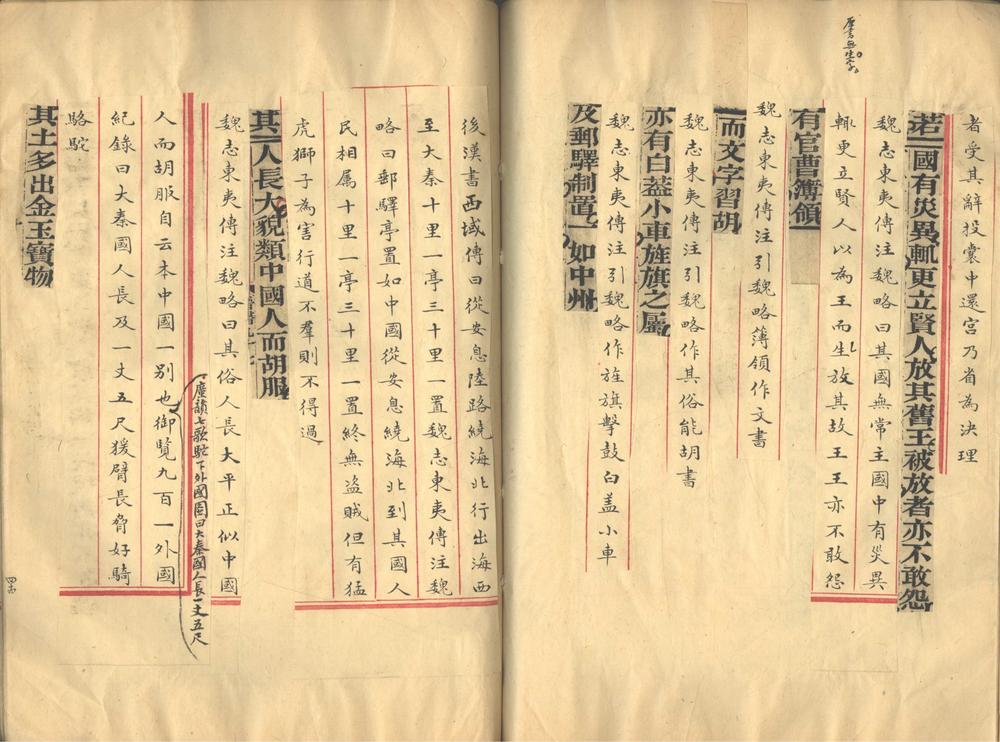 者受其辭投囊中還宮乃省為決理
若一國有災異輒更立賢人放其舊王被放者亦不敢怨
魏志東夷傳注魏略曰其國無常主國中有災異
輒更立賢人以為王而生放其故王王亦不敢怨
有官曹簿領
魏志東夷傳注引魏略簿領作文書
而文字習胡
魏志東夷傳注引魏略作其俗能胡書
亦有白蓋小車旌旗之屬
魏志東夷傳注引魏略作旌旗擊鼓白盖小車
及郵驛制置一如中州
後漢書西域傳曰從安息陸路繞海北行出海西
至大秦十里一亭三十里一置魏志東夷傳注魏
略曰郵驛亭置如中國從安息繞海北到其國人
民相属十里一亭三十里一置終無盜賊但有猛
虎獅子為害行道不羣則不得過
其人長大貌類中國人而胡服
魏志東夷傳注魏略曰其俗人長大平正似中國
人而胡服自云本中國一別也御覽九百一外國
廣韻七歌駝下外國圖曰大秦國人長一丈五尺
紀錄曰大秦國人長及一丈五尺猨臂長脅好騎
駱駝
其土多出金玉寶物